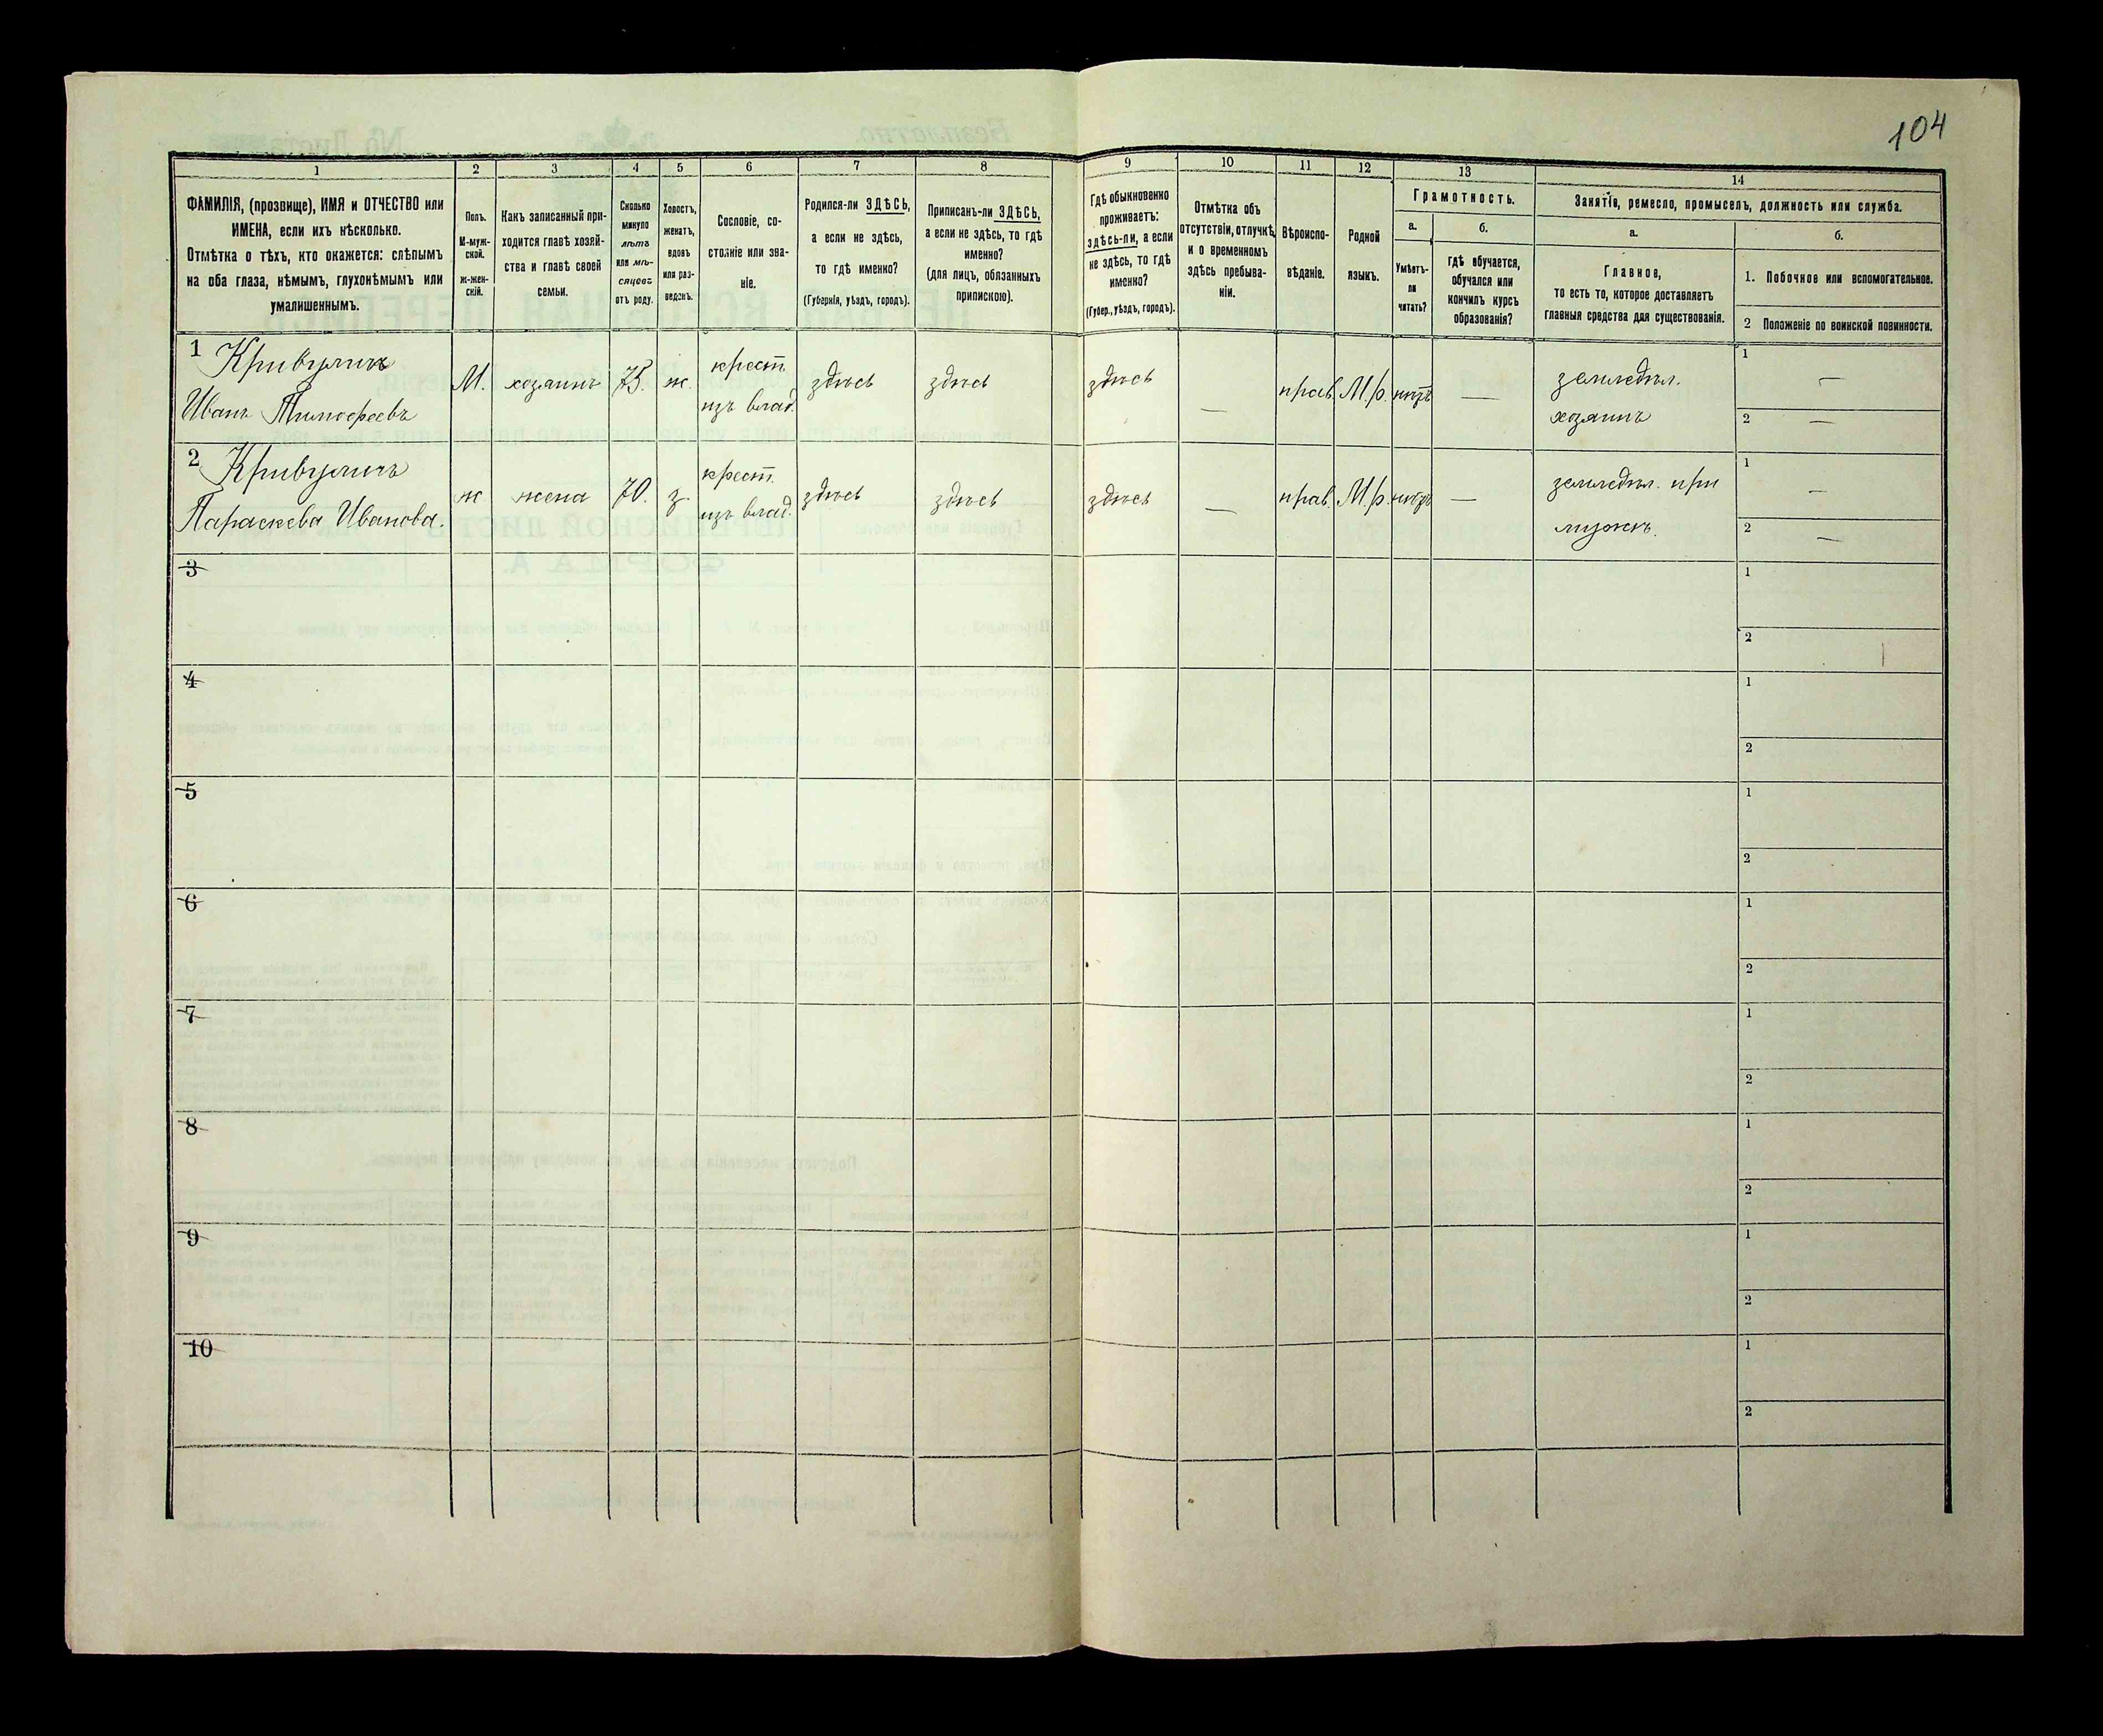 104
1
2
3
4
5
6
7
8
9
10
11
12
13
14
ФАМИЛІЯ, (прозвище), ИМЯ и ОТЧЕСТВО или
ИМЕНА, если ихъ нѣсколько.
Отмѣтка о тѣхъ, кто окажется: слѣпымъ
на оба глаза, нѣмымъ, глухонѣмымъ или
умалишеннымъ.
Полъ.
М-муж-
ской.
ж-жен-
скій.
Какъ записанный при-
ходится главѣ хозяй-
ства и главѣ своей
семьи.
Сколько
минуло
лѣтъ
или мѣ-
сяцевъ
отъ роду.
Холостъ,
женатъ,
вдовъ
или раз-
веденъ.
Сословіе, со-
стояніе или зва-
ніе.
Родился-ли ЗДѢСЬ,
а если не здѣсь,
то гдѣ именно?
(Губернія, уѣздъ, городъ).
Приписанъ-ли ЗДѢСЬ,
а если не здѣсь, то гдѣ
именно?
(для лицъ, обязанныхъ
припискою).
Гдѣ обыкновенно
проживаетъ:
здѣсь-ли, а если
не здѣсь, то гдѣ
именно?
(Губер., уѣздъ, городъ).
Отмѣтка объ
отсутствіи, отлучкѣ
и о временномъ
здѣсь пребыва-
ніи.
Вѣроиспо-
вѣданіе.
Родной
языкъ.
Грамотность.
а.
Умѣетъ-
ли
читать?
б.
гдѣ обучается,
обучался или
кончилъ курсъ
образованія?
Занятіе, ремесло, промыселъ, должность или служба.
а.
Главное,
то есть то, которое доставляетъ
главныя средства для существованія.
б.
1. Побочное или вспомогательное.
2 Положеніе по воинской повинности.
1 Кривулинъ
Иванъ Тимофеевъ
М.
хозяинъ
75.
ж.
крест.
изъ влад.
здѣсь
здѣсь
здѣсь
—
прав.
М.р.
нѣтъ
—
земледѣл.
хозяинъ
1 —
2 —
2 Кривуличъ
Параскева Иванова.
ж
жена
70.
з.
крест.
изъ влад.
здѣсь
здѣсь
здѣсь
—
прав.
М.р.
нѣтъ
—
земледѣл. при
мужѣ.
1 —
2 —
3
1
2
4
1
2
5
1
2
6
1
2
7
1
2
8
1
2
9
1
2
10
1
2